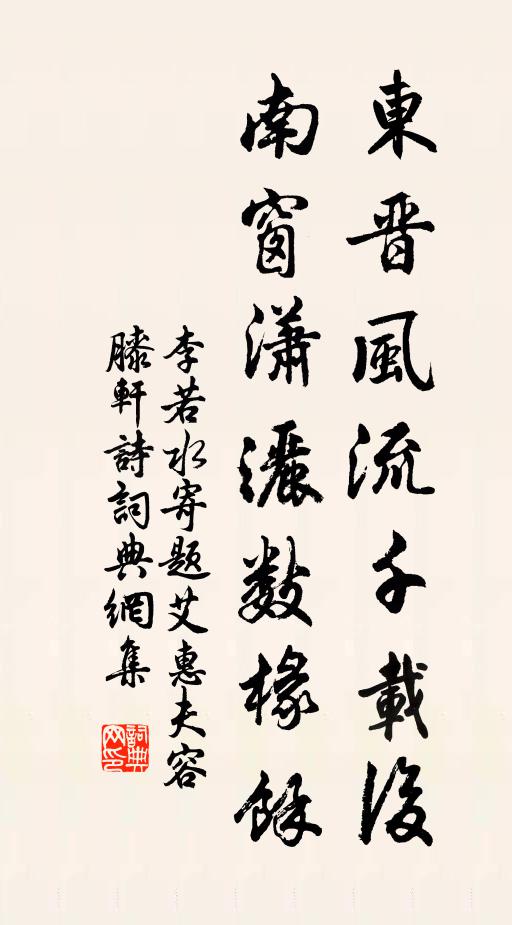 東晋風流千載後
南窗瀟灑数椽餘
李若水寄题艾惠夫容
滕軒詩詞典網集
詞典网印